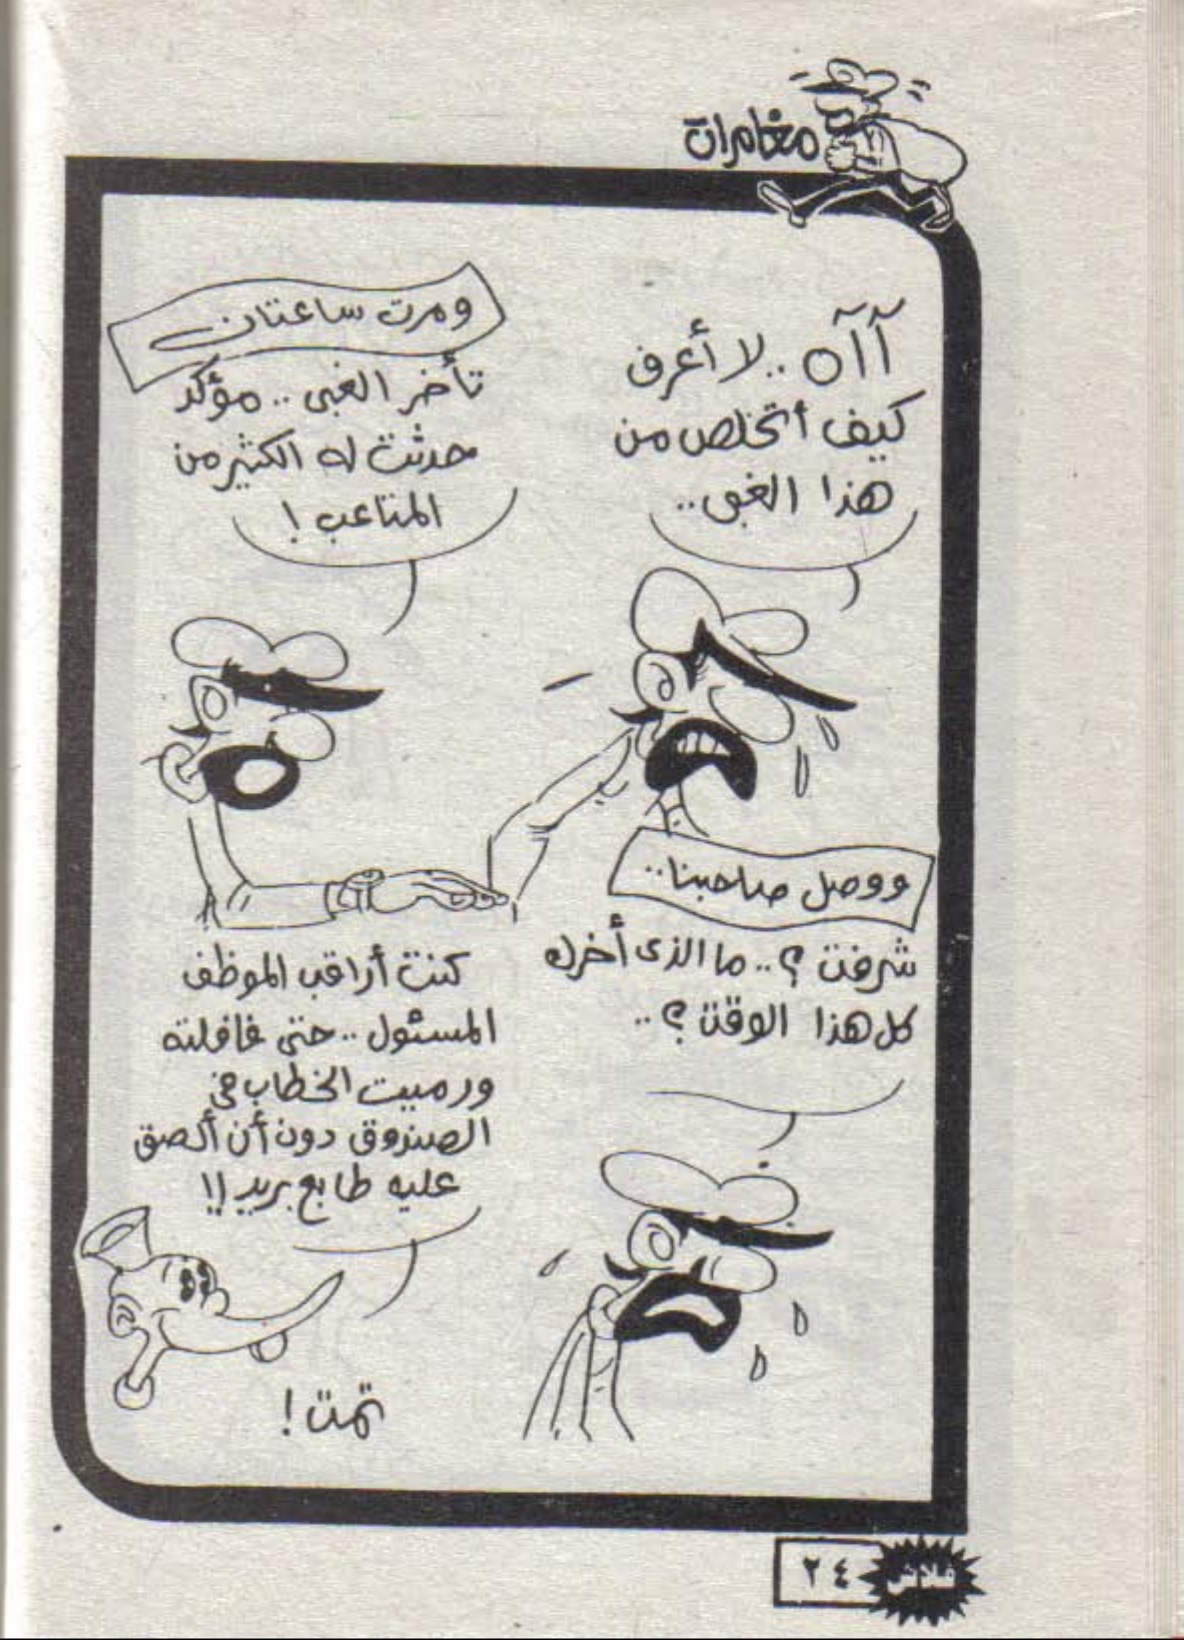 مغامرات
آآآه .. لا أعرف
كيف أتخلص من
هذا الغبى ..
ومرت ساعتان
تأخر الغبى .. مؤكد
حدثت له الكثير من
المتاعب !
ووصل صاحبنا ..
شرفت ؟ .. ما الذى أخرك
كل هذا الوقت ؟ ..
كنت أراقب الموظف
المسئول .. حتى غافلته
ورميت الخطاب فى
الصندوق دون أن ألصق
عليه طابع بريد !!
تمت !
فلاش
٢٤